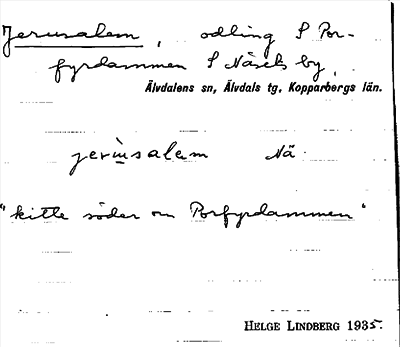 Jerusalem, odling S Por-
fyrdammen S Näsets by,
Älvdalens sn, Älvdals tg, Kopparbergs län.
jerùsalem Nä
"kitte söder om Porfyrdammen"
HELGE LINDBERG 1935.